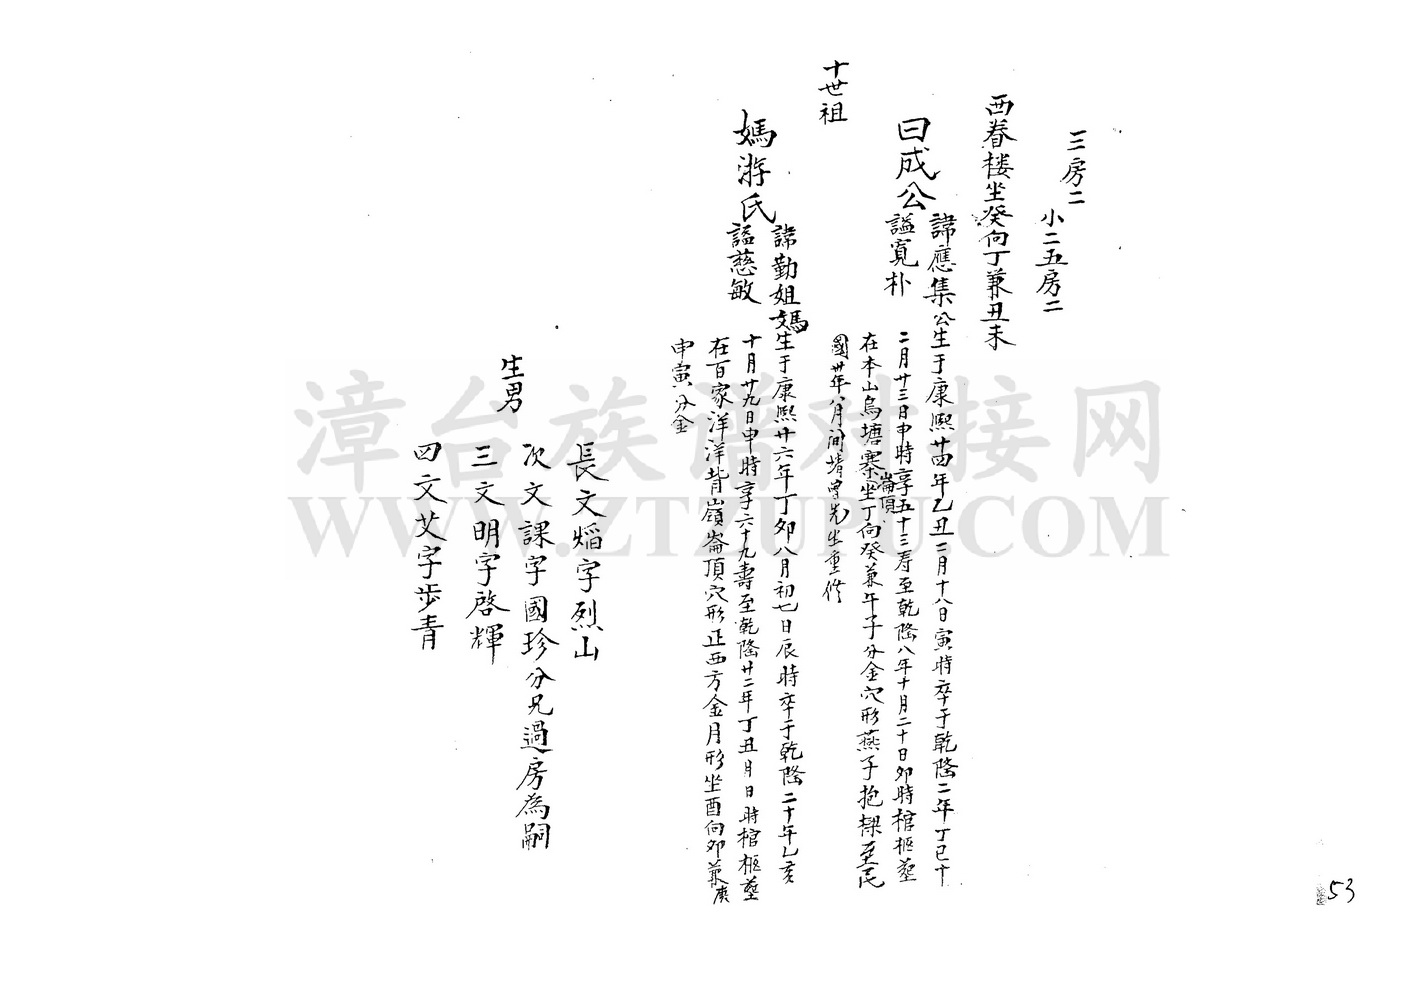 三房二
小二五房二
西眷楼坐癸向丁兼丑未
曰成公
諱應集公生于康熙廿四年乙丑二月十八日寅時卒于乾隆二年丁巳十
謚寬朴
二月廿三日申時享五十三寿至乾隆八年十月二十日卯時棺柩塟
在本山烏塘寨崙頂坐丁向癸兼午子分金穴形燕子抱樑至民
國卅年八月间靖曾先生重修
十世祖
媽游氏
諱勤姐媽生于康熙廿六年丁卯八月初七日辰時卒于乾隆二十年乙亥
謚慈敏
十月廿九日申時享六十九壽至乾隆廿二年丁丑月日時棺柩塟
在百家洋洋背嶺崙頂穴形正西方金月形坐酉向卯兼庚
申寅分金
生男
長文熖字烈山
次文課字國珍分兄過房為嗣
三文明字啓輝
四文艾字步青
53
漳台族谱对接网
WWW.ZTZUPU.COM